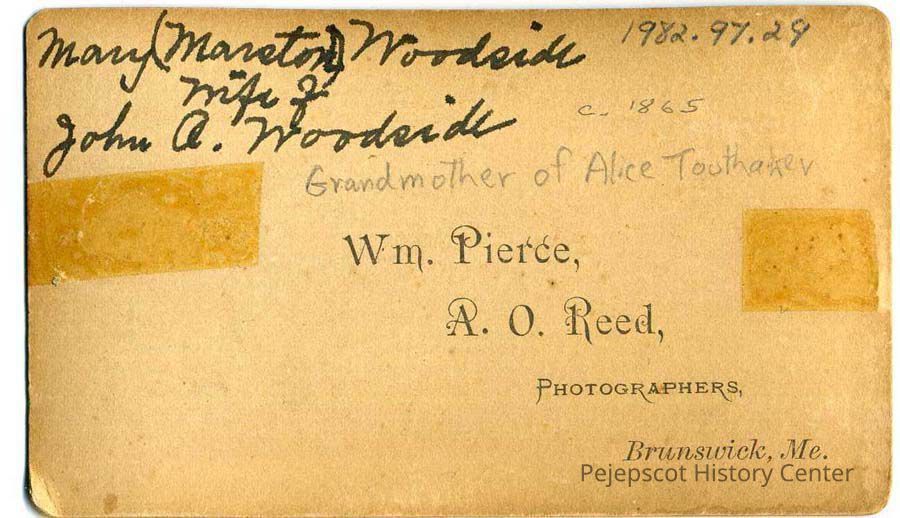 Mary (Marston) Woodside
1982.97.29
Wife of
c. 1865
John A. Woodside
Grandmother of Alice Touthaker
Wm. Pierce,
A. O. Reed,
PHOTOGRAPHERS,
Brunswick, Me.
Pejepscot History Center